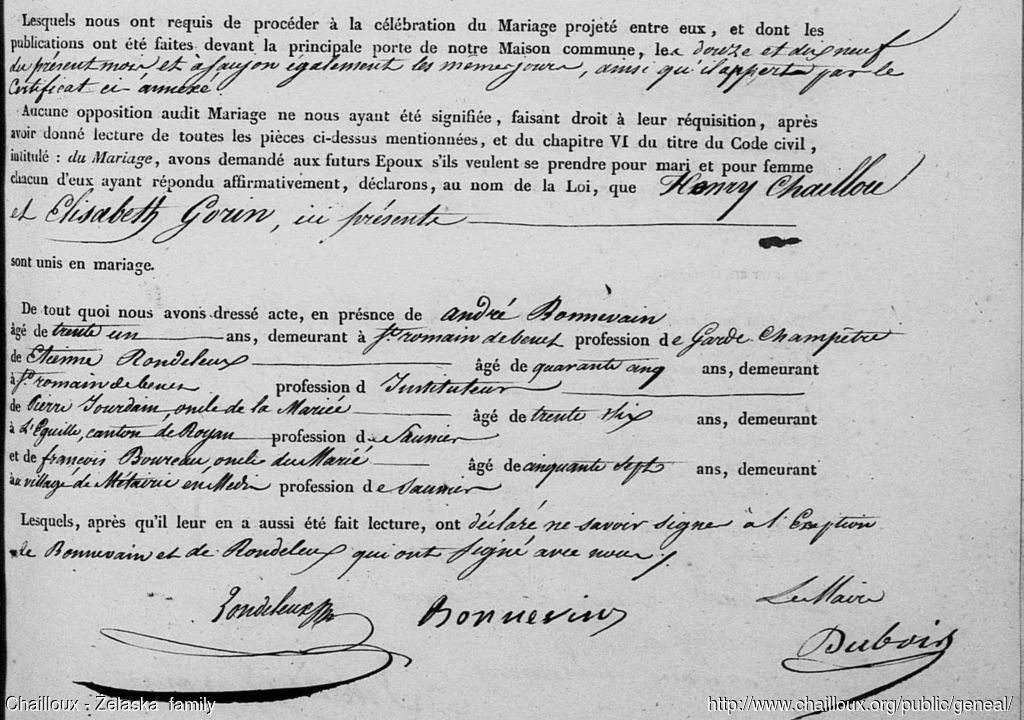 Lesquels nous ont requis de procéder à la célébration du Mariage projeté entre eux, et dont les
publications ont été faites devant la principale porte de notre Maison commune, les douze et dix neuf
du présent mois et a saujon également les memes jours, ainsi qu'il appert par le
Certificat ci annéxé.
Aucune opposition audit Mariage ne nous ayant été signifiée, faisant droit à leur réquisition, après
avoir donné lecture de toutes les pièces ci-dessus mentionnées, et du chapitre VI du titre du Code civil,
intitulé : du Mariage, avons demandé aux futurs Epoux s'ils veulent se prendre pour mari et pour femme
chacun d'eux ayant répondu affirmativement, déclarons, au nom de la Loi, que Henry Chaillou
et Elisabeth Gorin, ici présente
sont unis en mariage.
De tout quoi nous avons dressé acte, en présnce de andré Bonnevain
âgé de trente un ans, demeurant à St. romain de benet profession de Garde Champêtre
de Etienne Rondeleux âgé de quarante cinq ans, demeurant
à St. romain de benet profession d Instituteur
de Pierre Jourdain, oncle de la Mariée âgé de trente six ans, demeurant
à L'Eguille, canton de Royan profession de Saunier
et de françois Boureau, oncle du Marié âgé de cinquante sept ans, demeurant
au village de Métairie en Medis profession de Saunier
Lesquels, après qu'il leur en a aussi été fait lecture, ont déclaré ne savoir signer à l'Exeption
de Bonnevain et de Rondeleux qui ont signé avec nous.
Rondeleux Bonnevin
Le Maire
Dubois
Chailloux - Żelaska family http://www.chailloux.org/public/geneal/